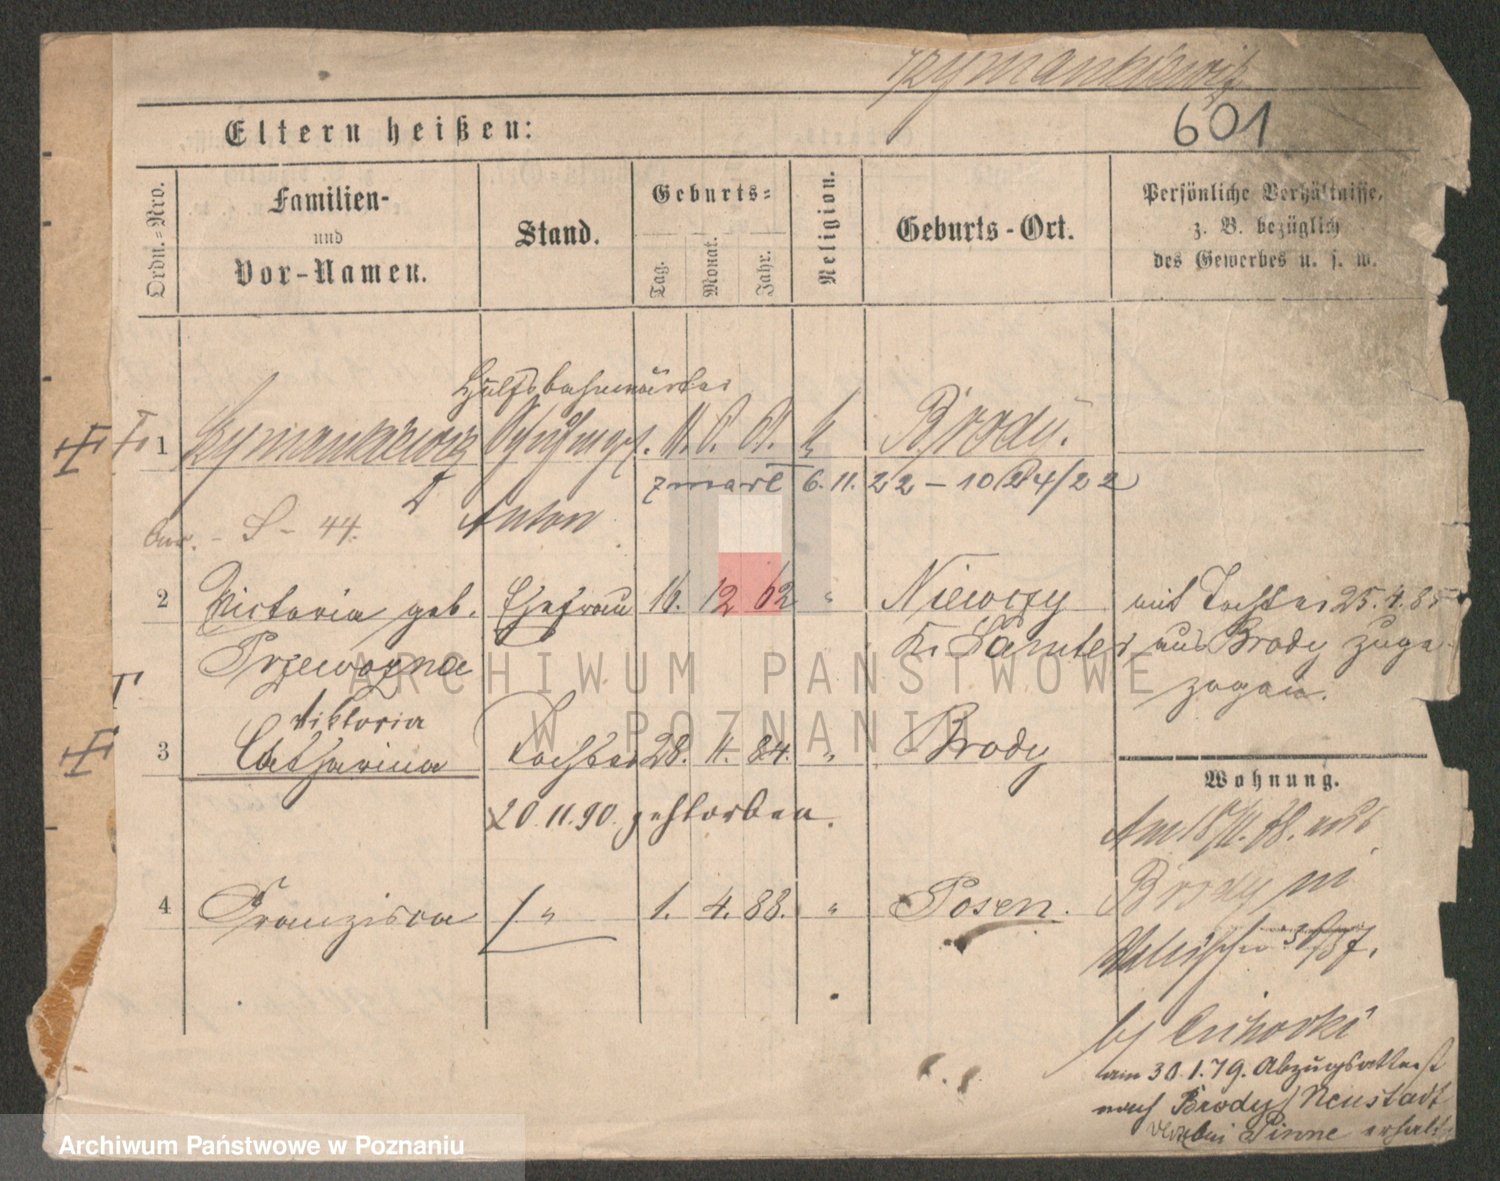 Szymankiewicz
601
Eltern heißen:
Ordn.-Nro.
Familien-
und
Vor-Namen.
Stand.
Geburts-
Tag.
Monat.
Jahr.
Religion.
Geburts-Ort.
Persönliche Verhältnisse,
z. B. bezüglich
des Gewerbes u. s. w.
Hülfsbahnwärter
1 Szymankiewicz 11. 6. 61. k Brody.
zmarł 6.11.22 – 1024/22
Anton
S - 44.
2 Victoria geb. Ehefrau 16. 12 62 " Niewrzy mit Tochter 25.4.85
Przewozna Kr. Samter aus Brody zuge-
zogen.
Viktoria
3 Catharina Tochter 28. 11. 84. " Brody
20.11.90. gestorben.
Wohnung.
4 Franzisca / " 1. 4. 88. " Posen.
Am nach
Brody
by Cichocki
am 30.1.79. Abzugsattest
nach Brody Neustadt
bei Pinne erhalt
ARCHIWUM PAŃSTWOWE
W POZNANIU
Archiwum Państwowe w Poznaniu